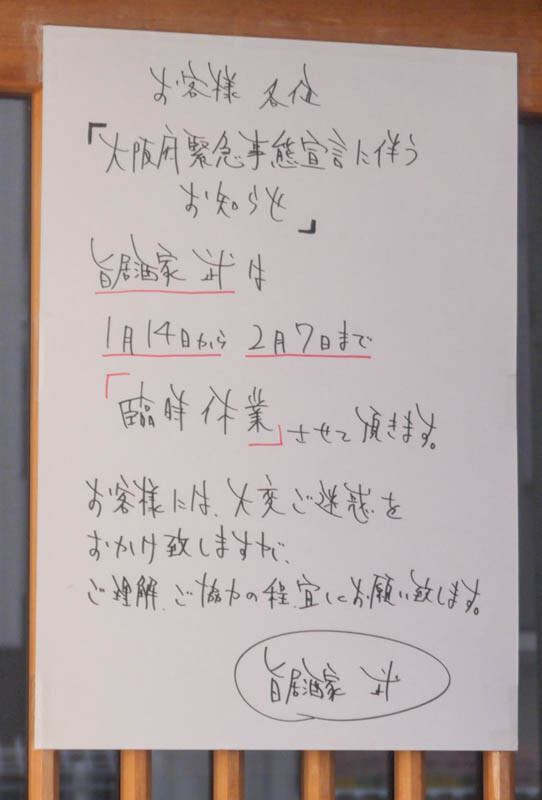 お客様 各位
「大阪府緊急事態宣言に伴う
お知らせ」
旨居酒家 武は
1月14日から 2月7日まで
「臨時休業」させて頂きます。
お客様には、大変ご迷惑を
おかけ致しますが、
ご理解、ご協力の程、宜しくお願い致します。
旨居酒家 武